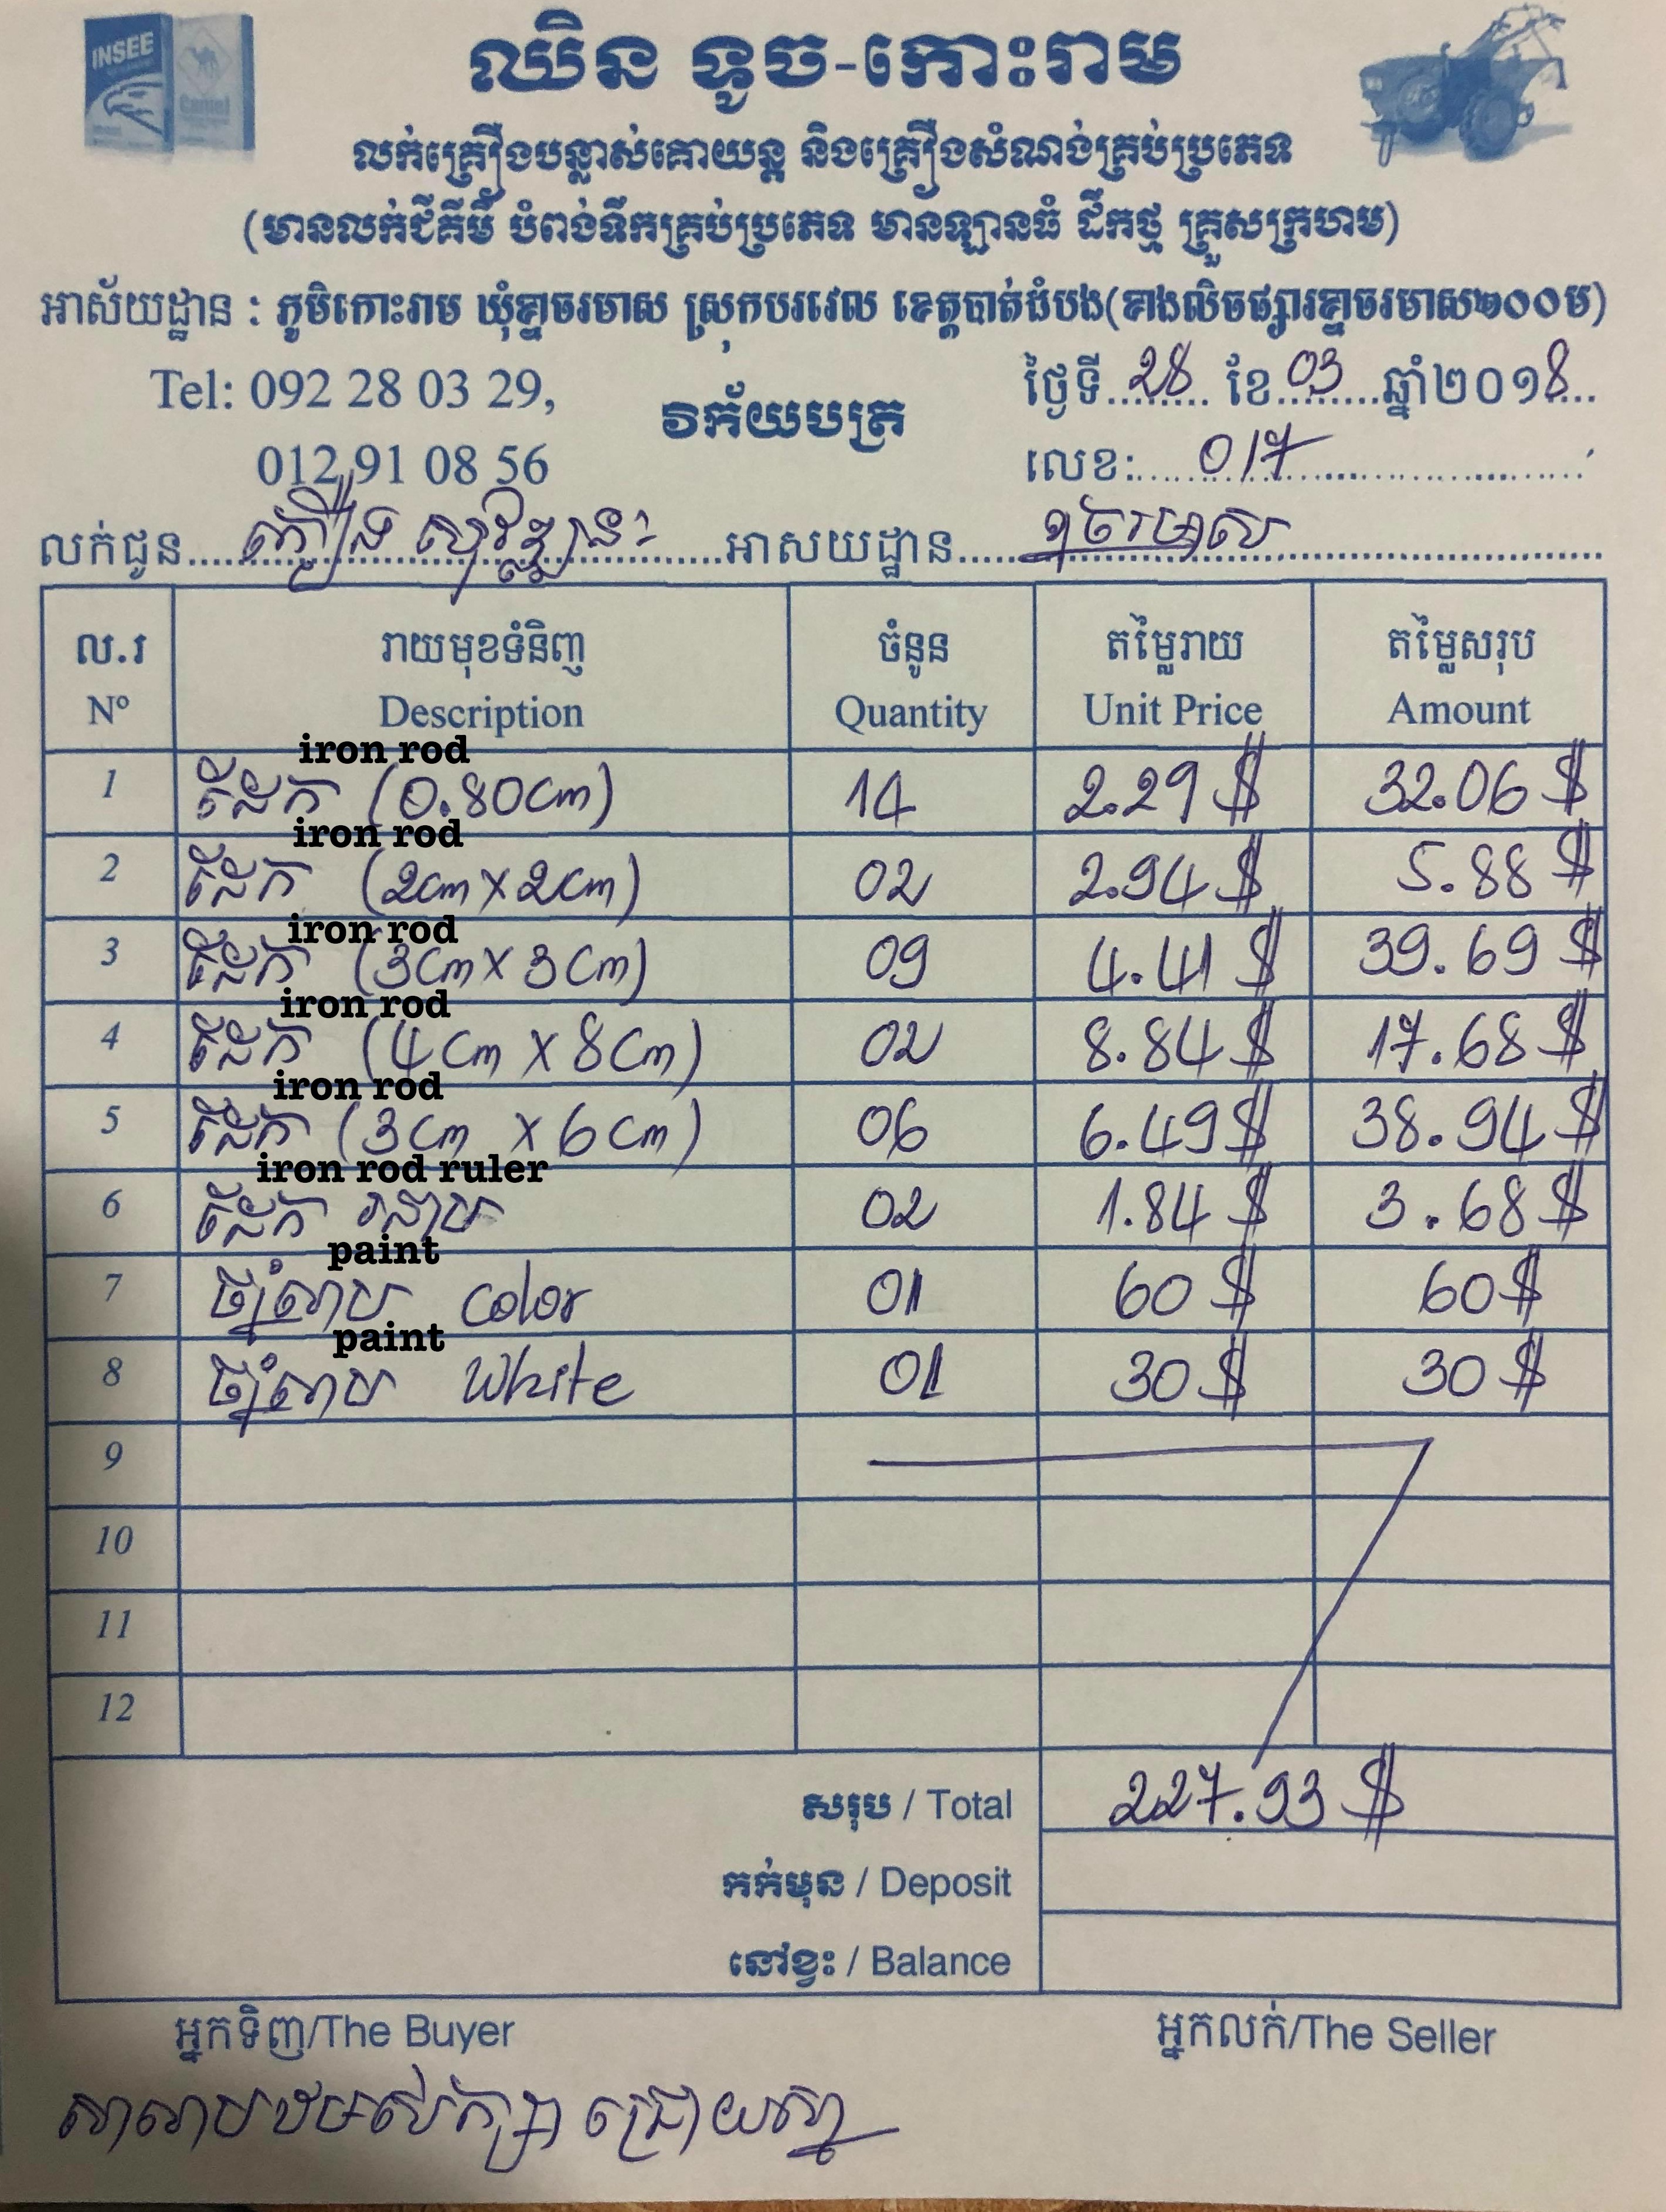 INSEE
Camel
ឈិន ទូច-កោះរាម
លក់គ្រឿងបន្លាស់គោយន្ត និងគ្រឿងសំណង់គ្រប់ប្រភេទ
(មានលក់ជីគីមី បំពង់ទឹកគ្រប់ប្រភេទ មានឡានធំ ដឹកថ្ម គ្រួសក្រហម)
អាស័យដ្ឋាន : ភូមិកោះរាម ឃុំខ្នាចរមាស ស្រុកបរវេល ខេត្តបាត់ដំបង(ខាងលិចផ្សារខ្នាចរមាស២០០ម)
Tel: 092 28 03 29,
012 91 08 56
វិក័យបត្រ
ថ្ងៃទី 28 ខែ 03 ឆ្នាំ២០១8
លេខ: 017
លក់ជូន អាសយដ្ឋាន
ល.រ រាយមុខទំនិញ ចំនួន តម្លៃរាយ តម្លៃសរុប
Nº Description Quantity Unit Price Amount
iron rod
1 ដែក (0.80cm) 14 2.29 $ 32.06 $
iron rod
2 ដែក (2cm x 2cm) 02 2.94 $ 5.88 $
iron rod
3 ដែក (3cm x 3cm) 09 4.41 $ 39.69 $
iron rod
4 ដែក (4cm x 8cm) 02 8.84 $ 17.68 $
iron rod
5 ដែក (3cm x 6cm) 06 6.49 $ 38.94 $
iron rod ruler
6 ដែក 02 1.84 $ 3.68 $
paint
7 ថ្នាំលាប color 01 60 $ 60 $
paint
8 ថ្នាំលាប White 01 30 $ 30 $
9
10
11
12
សរុប / Total 227.93 $
កក់មុន / Deposit
នៅខ្វះ / Balance
អ្នកទិញ/The Buyer អ្នកលក់/The Seller